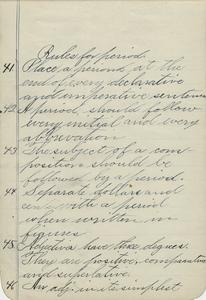 Rules for period.
41 Place a period at the
end of every declarative
and imperative sentence
42 A period should follow
every initial and every
abbreviation
43 The subject of a com-
position should be
followed by a period.
44 Separate dollars and
cents with a period
when written in
figures
45 Adjectives have three degrees.
They are positive, comparative
and superlative.
46 An adj. in its simplest